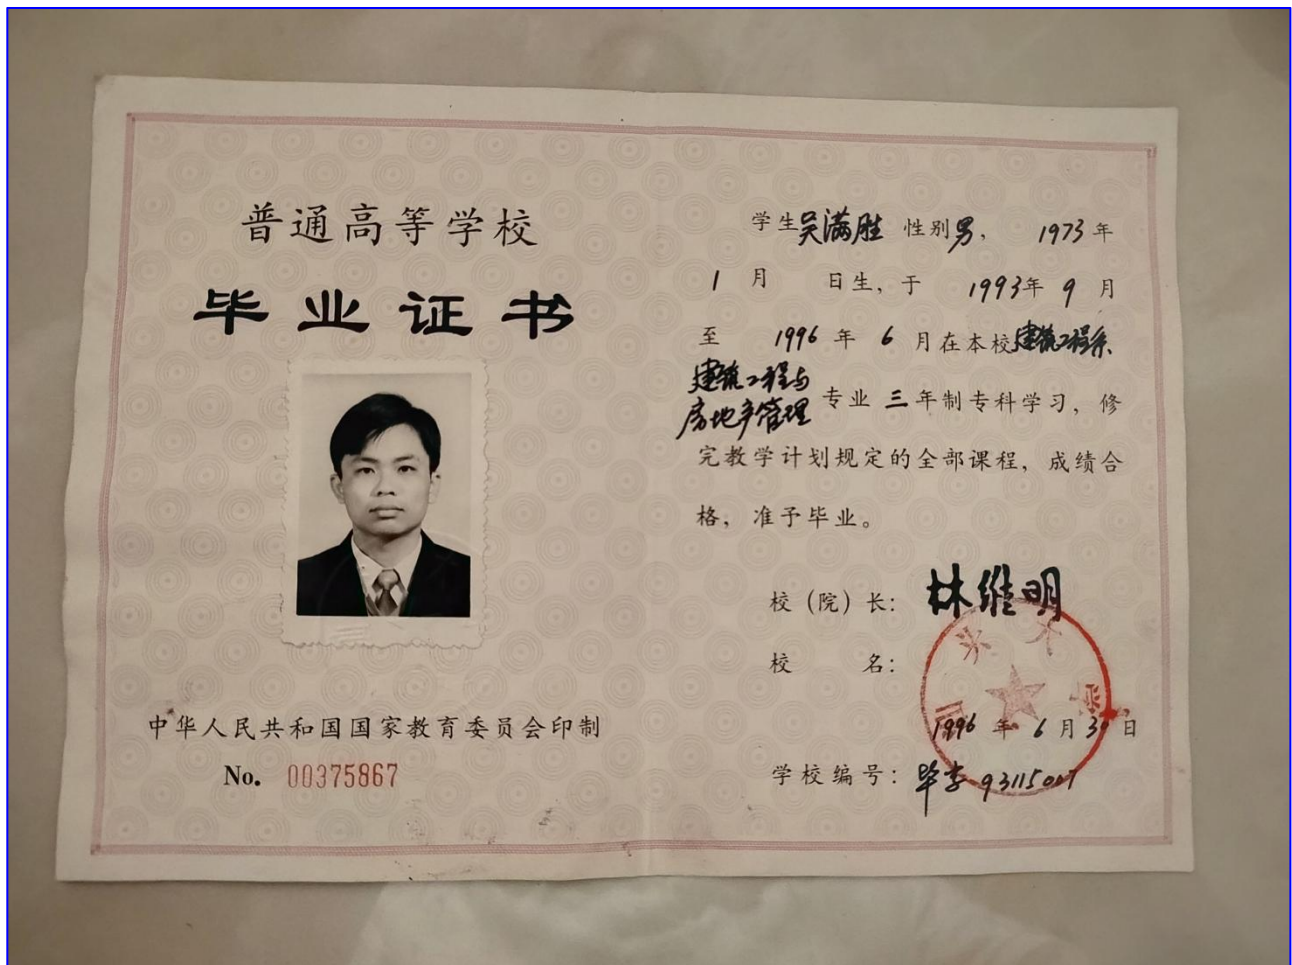 普通高等学校
毕业证书
中华人民共和国国家教育委员会印制
No. 00375867
学生吴满胜 性别男， 1973年
1月 日生，于 1993年9月
至 1996年6月在本校建筑工程系
建筑工程与
房地产管理 专业三年制专科学习，修
完教学计划规定的全部课程，成绩合
格，准予毕业。
校（院）长：林维明
校 名：
汕头大学
1996年6月30日
学校编号：毕字93115007